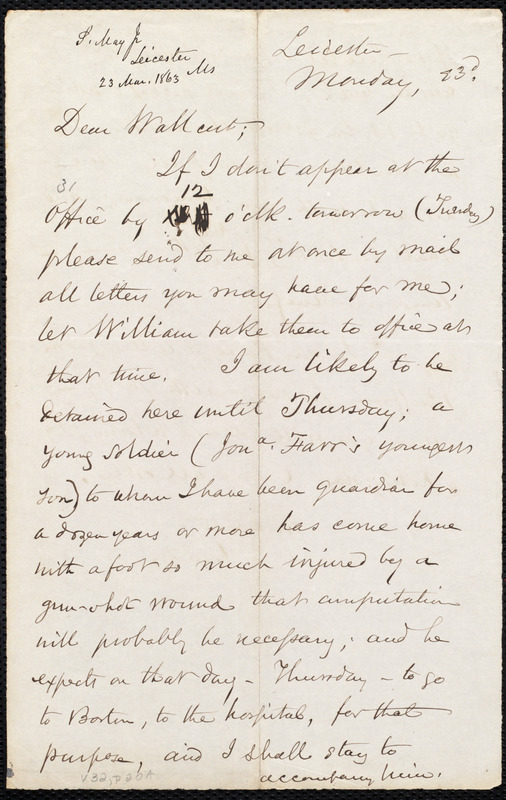 S. May Jr
Leicester
23 Mar. 1863 Ms
Leicester –
Monday, 23d.
Dear Wallcut;
If I don't appear at the
31
12
Office by o'clk. tomorrow (Tuesday)
please send to me at once by mail
all letters you may have for me;
let William take them to office at
that time. I am likely to be
detained here until Thursday; a
young soldier (Jona. Farr's youngest
son) to whom I have been guardian for
a dozen years or more has come home
with a foot so much injured by a
gun-shot wound that amputation
will probably be necessary; and he
expects on that day – Thursday – to go
to Boston, to the hospital, for that
purpose, and I shall stay to
accompany him.
V32, p 20A